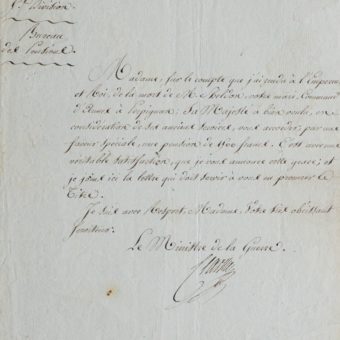 Division
Bureau
des Pensions.
Madame, sur le compte que j'ai rendu à l'Empereur
et Roi, de la mort de M. Sheldon, votre mari, Command.
d'Armes à Perpignan; Sa Majesté a bien voulu, en
considération de ses anciens services, vous accorder, par une
faveur spéciale, une pension de francs. C'est avec une
véritable satisfaction, que je vous annonce cette grace; et
je joins ici la lettre qui doit servir à vous en procurer le
Titre.
Je suis avec Respect, Madame, Votre très obéissant
Serviteur.
Le Ministre de la Guerre.